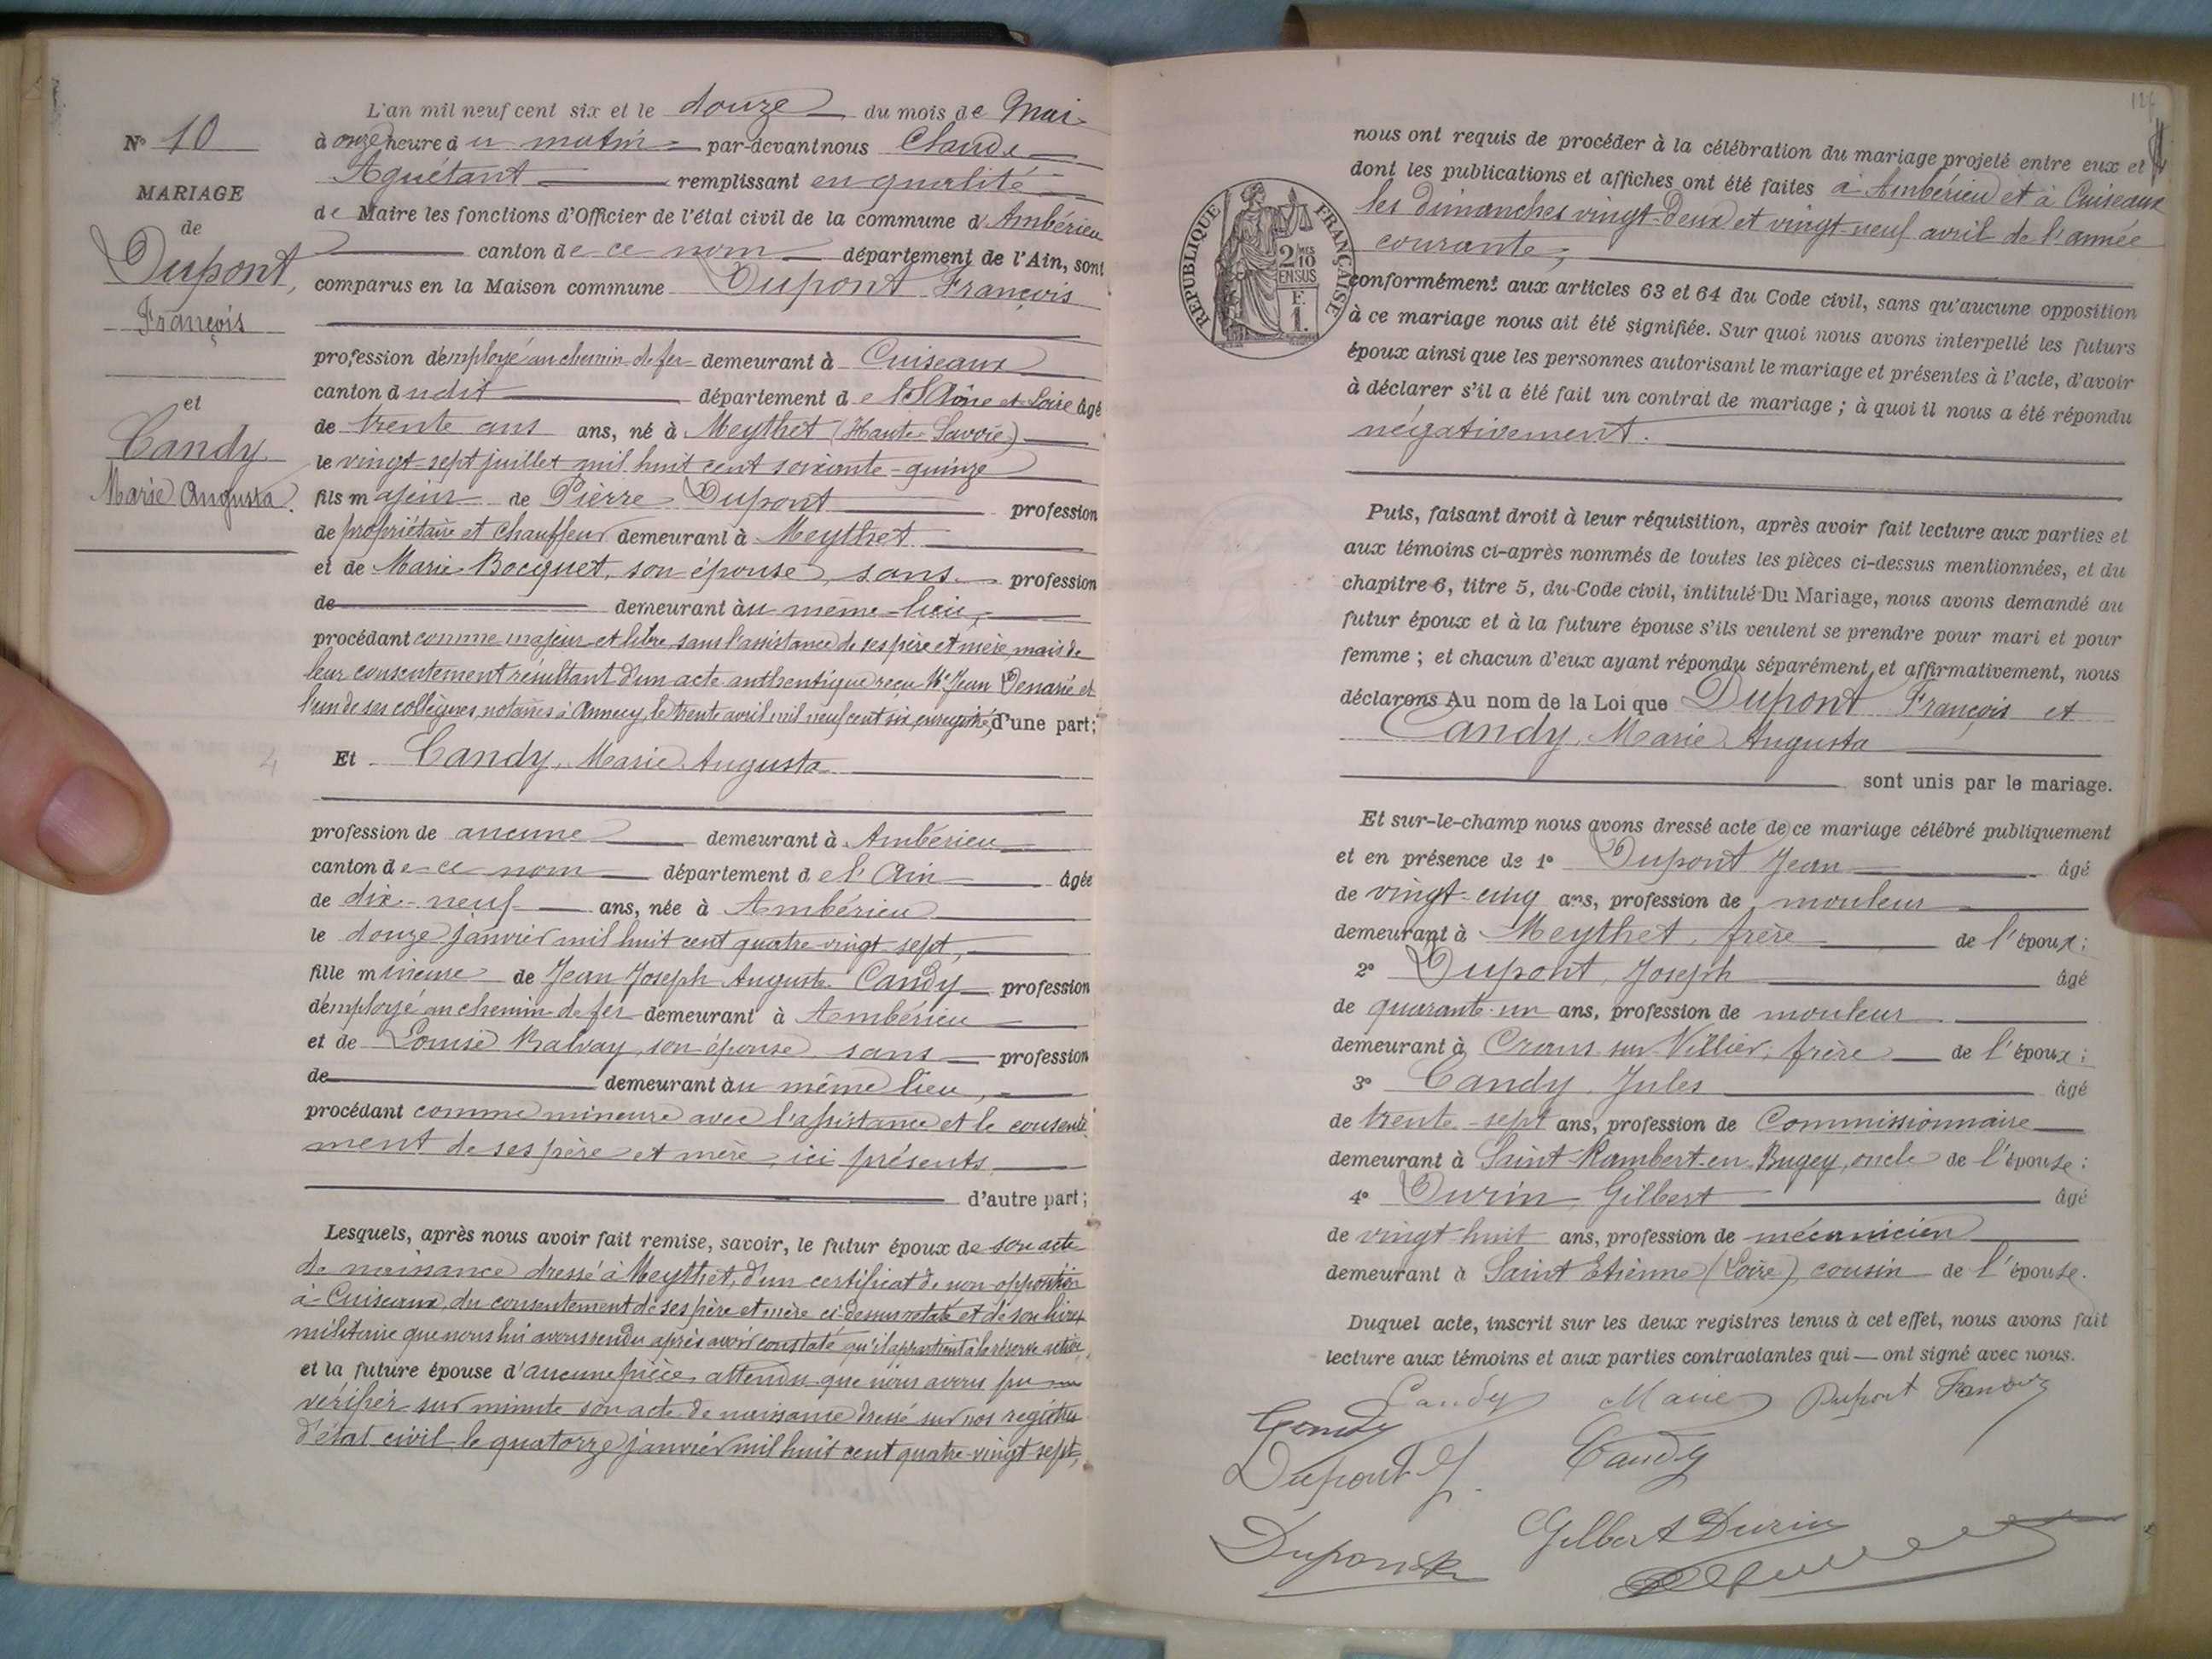 N° 10
MARIAGE
de
Dupont,
François
et
Candy
Marie Augusta.
L'an mil neuf cent six et le douze du mois de Mai
à onze heure du matin par-devant nous Claude
Aguétant remplissant en qualité
de Maire les fonctions d'Officier de l'état civil de la commune d'Ambérieu
canton de ce nom département de l'Ain, sont
comparus en la Maison commune Dupont François
profession d'employé au chemin de fer demeurant à Cuiseaux
canton dudit département de Saône et Loire âgé
de trente ans ans, né à Meythet (Haute Savoie)
le vingt-sept juillet mil huit cent soixante-quinze
fils majeur de Pierre Dupont profession
de propriétaire et chauffeur demeurant à Meythet
et de Marie Bocquet, son épouse, sans profession
de demeurant au même lieu,
procédant comme majeur et libre, sans l'assistance de ses père et mère, mais de
leur consentement résultant d'un acte authentique reçu Me Jean Denarié et
l'un de ses collègues, notaires à Annecy, le trente avril mil neuf cent six, enregistré, d'une part;
Et Candy, Marie Augusta
profession de aucune demeurant à Ambérieu
canton de ce nom département de l'Ain âgée
de dix-neuf ans, née à Ambérieu
le douze janvier mil huit cent quatre-vingt-sept,
fille mineure de Jean Joseph Auguste Candy profession
d'employé au chemin de fer demeurant à Ambérieu
et de Louise Ralvay, son épouse, sans profession
de demeurant au même lieu,
procédant comme mineure avec l'assistance et le consente
ment de ses père et mère, ici présents
d'autre part;
Lesquels, après nous avoir fait remise, savoir, le futur époux de son acte
de naissance dressé à Meythet, d'un certificat de non-opposition
à Cuiseaux, du consentement de ses père et mère ci-dessus relaté et de son livret
militaire que nous lui avons rendu après avoir constaté qu'il appartient à la réserve active,
et la future épouse d'aucune pièce, attendu que nous avons pu
vérifier sur minute son acte de naissance dressé sur nos registres
d'état civil le quatorze janvier mil huit cent quatre-vingt-sept,
nous ont requis de procéder à la célébration du mariage projeté entre eux et
dont les publications et affiches ont été faites à Ambérieu et à Cuiseaux
les dimanches vingt-deux et vingt-neuf avril de l'année
courante,
RÉPUBLIQUE FRANÇAISE
2/10 EN SUS
F.
1.
conformément aux articles 63 et 64 du Code civil, sans qu'aucune opposition
à ce mariage nous ait été signifiée. Sur quoi nous avons interpellé les futurs
époux ainsi que les personnes autorisant le mariage et présentes à l'acte, d'avoir
à déclarer s'il a été fait un contrat de mariage; à quoi il nous a été répondu
négativement.
Puis, faisant droit à leur réquisition, après avoir fait lecture aux parties et
aux témoins ci-après nommés de toutes les pièces ci-dessus mentionnées, et du
chapitre 6, titre 5, du Code civil, intitulé Du Mariage, nous avons demandé au
futur époux et à la future épouse s'ils veulent se prendre pour mari et pour
femme; et chacun d'eux ayant répondu séparément et affirmativement, nous
déclarons Au nom de la Loi que Dupont François et
Candy, Marie Augusta
sont unis par le mariage.
Et sur-le-champ nous avons dressé acte de ce mariage célébré publiquement
et en présence de 1° Dupont Jean âgé
de vingt-cinq ans, profession de mouleur
demeurant à Meythet, frère de l'époux;
2° Dupont, Joseph âgé
de quarante-un ans, profession de mouleur
demeurant à Crans sur Villier, frère de l'époux;
3° Candy, Jules âgé
de trente-sept ans, profession de Commissionnaire
demeurant à Saint Rambert-en-Bugey, oncle de l'épouse;
4° Durin, Gilbert âgé
de vingt-huit ans, profession de mécanicien
demeurant à Saint Etienne (Loire), cousin de l'épouse.
Duquel acte, inscrit sur les deux registres tenus à cet effet, nous avons fait
lecture aux témoins et aux parties contractantes qui ont signé avec nous.
Candy Marie Dupont François
Candy
Dupont J. Candy
Gilbert Durin
Dupont